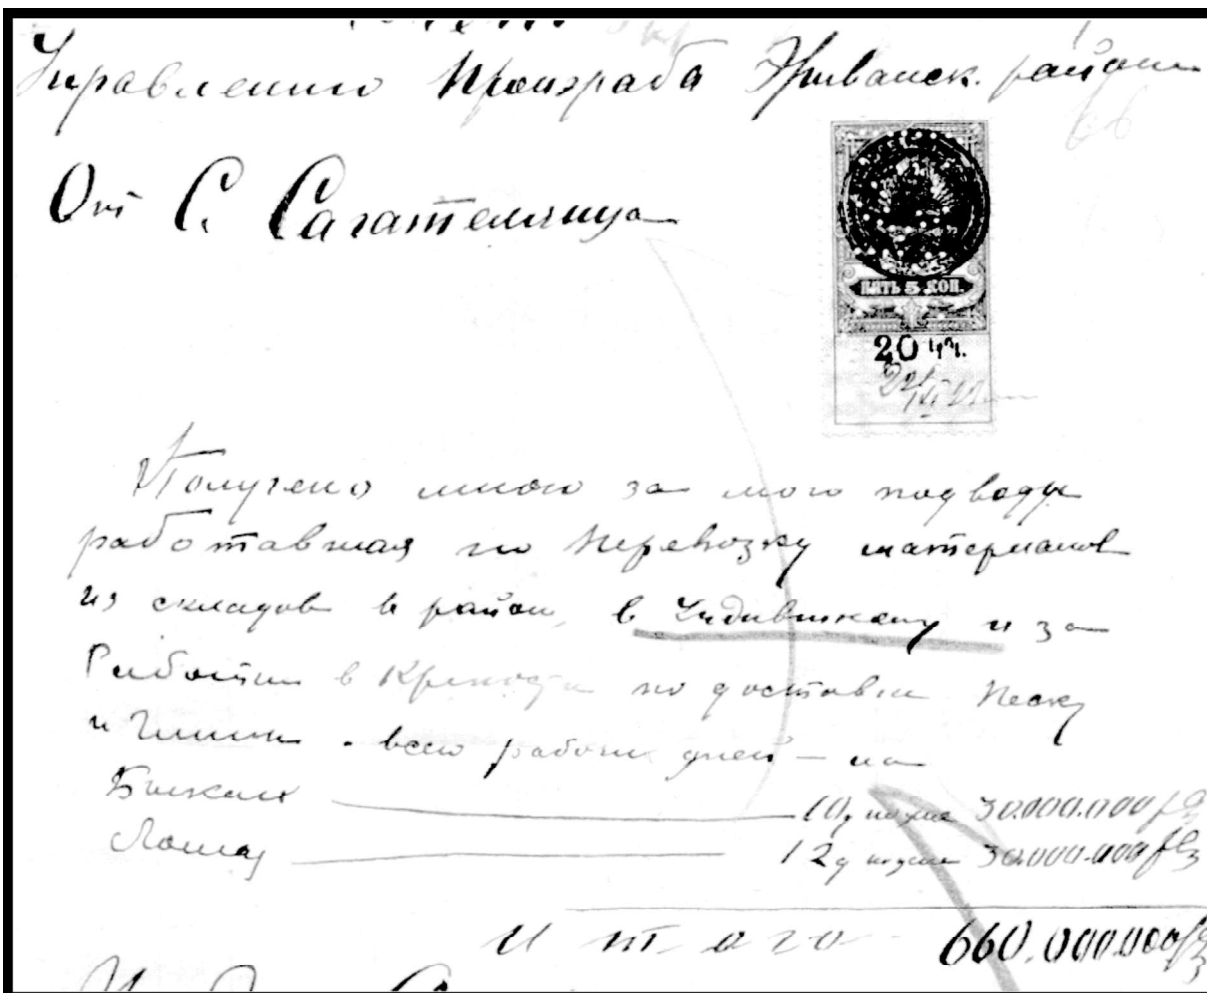 Управлению Прораба Эриванск. района
От С. Сагателянца
ПЯТЬ 5 КОП.
20
Получено мною за мою подводу
работавшая по перевозку материалов
из складов в район, в и за
Работы в по доставки Песку
и Глины. всего рабочи дней – на
Быках 10 д 30.000.000 р
Лошад 12 д 30.000.000 р
Итого 660.000.000 р